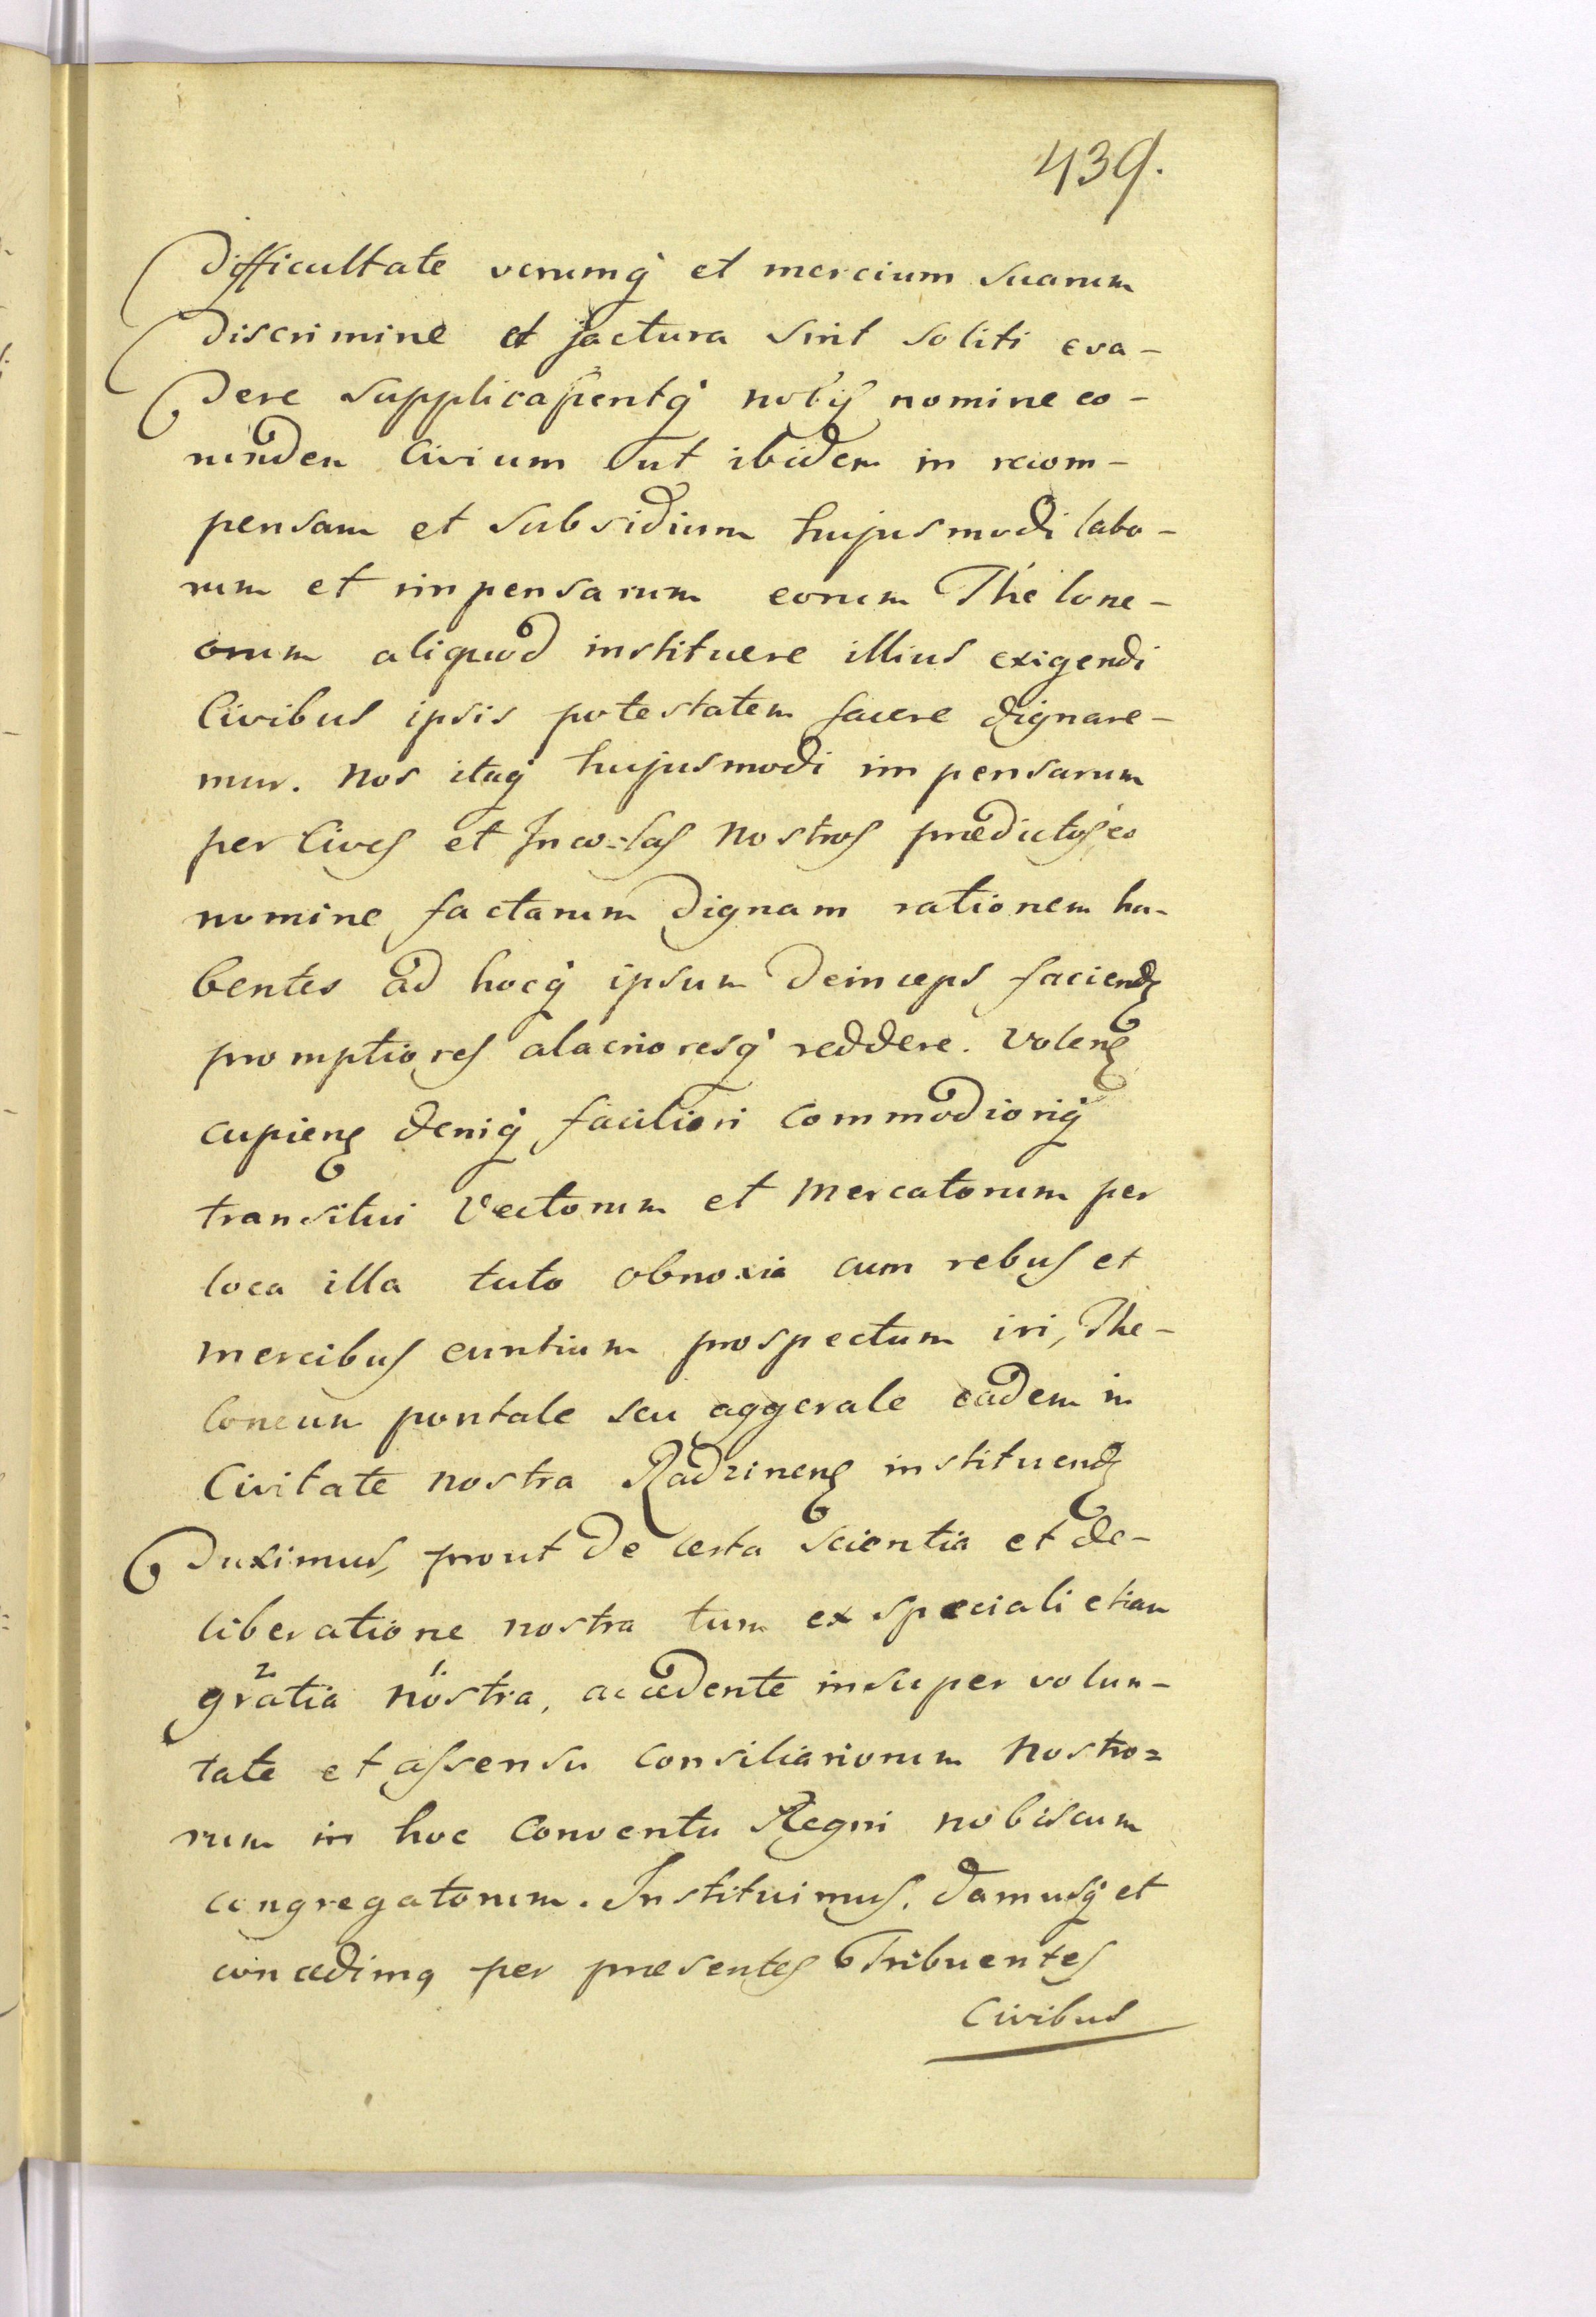 439.
Difficultate rerumq́ et mercium suarum
discrimine et jactura sint soliti eva-
dere supplicassentq́ nobis nomine eo-
rundem Civium Out ibidem in recom-
pensam et subsidium hujusmodi labo-
rum et impensarum eorum Thelone-
orum aliquod instituere illius exigendi
Civibus ipsis potestatem facere dignare-
mur. Nos itaq́ hujusmodi impensarum
per Cives et Inco=las Nostros prædictos eo
nomine factarum dignam rationem ha-
bentes ad hocq́ ipsum deinceps faciendȩ
promptiores alacrioresq́ reddere. Volenȩ
cupienȩ deniq́ faciliori commodioriq́
transitui Vectorum et Mercatorum per
loca illa tuto obnoxia cum rebus et
mercibus euntium prospectum iri, The-
loneum pontale seu aggerale eadem in
Civitate nostra Radzinenȩ instituendȩ
Duximus, prout de certa scientia et de-
liberatione nostra tum ex speciali etiam
gratia 2 nostra 1, accedente insuper volun-
tate et assensu Consiliariorum Nostro=
rum in hoc Conventu Regni nobiscum
congregatorum. Instituimus, damusq́ et
concedimq per præsentes Tribuentes
Civibus